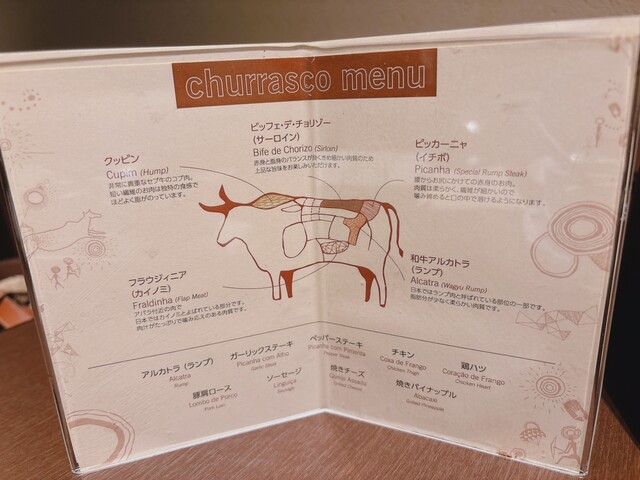 churrasco menu
ビッフェ・デ・チョリソー
(サーロイン)
Bife de Chorizo (Sirloin)
赤身と脂身のバランスが良くきめ細かい肉質のため
上品な旨味をお楽しみいただけます。
クッピン
Cupim (Hump)
非常に貴重なセブ牛のコブ肉。
短い繊維のお肉は独特の食感で
ほどよく脂がのっています。
ピッカーニャ
(イチボ)
Picanha (Special Rump Steak)
腰からお尻にかけての赤身のお肉。
肉質は柔らかく、繊維が細かいので
噛み締めると口の中で溶けるようになります。
フラウジィニア
(カイノミ)
Fraldinha (Flap Meat)
アバラ付近の肉で
日本ではカイノミとよばれている部分です。
肉汁がたっぷりで噛み応えのある肉質です。
和牛アルカトラ
(ランプ)
Alcatra (Wagyu Rump)
日本ではランプ肉と呼ばれている部位の一部です。
脂肪分が少なく柔らかい肉質です。
アルカトラ (ランプ)
Alcatra
Rump
ガーリックステーキ
Picanha com Alho
Garlic Steak
ペッパーステーキ
Picanha com Pimenta
Pepper Steak
チキン
Coxa de Frango
Chicken Thigh
鶏ハツ
Coração de Frango
Chicken Heart
豚肩ロース
Lombo de Porco
Pork Loin
ソーセージ
Linguiça
Sausage
焼きチーズ
Queijo Assado
Grilled Cheese
焼きパイナップル
Abacaxi
Grilled Pineapple